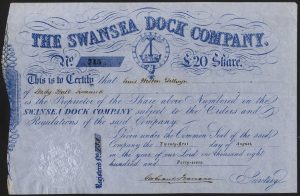 THE SWANSEA DOCK COMPANY.
No 315 £20 Share.
This is to Certify that
of Swansea
is the Proprietor of the Share above Numbered in the
SWANSEA DOCK COMPANY subject to the Orders and
Regulations of the said Company.
Given under the Common Seal of the said
Company the Twenty first day of August
in the year of our Lord one thousand eight
hundred and Forty-seven
Registered